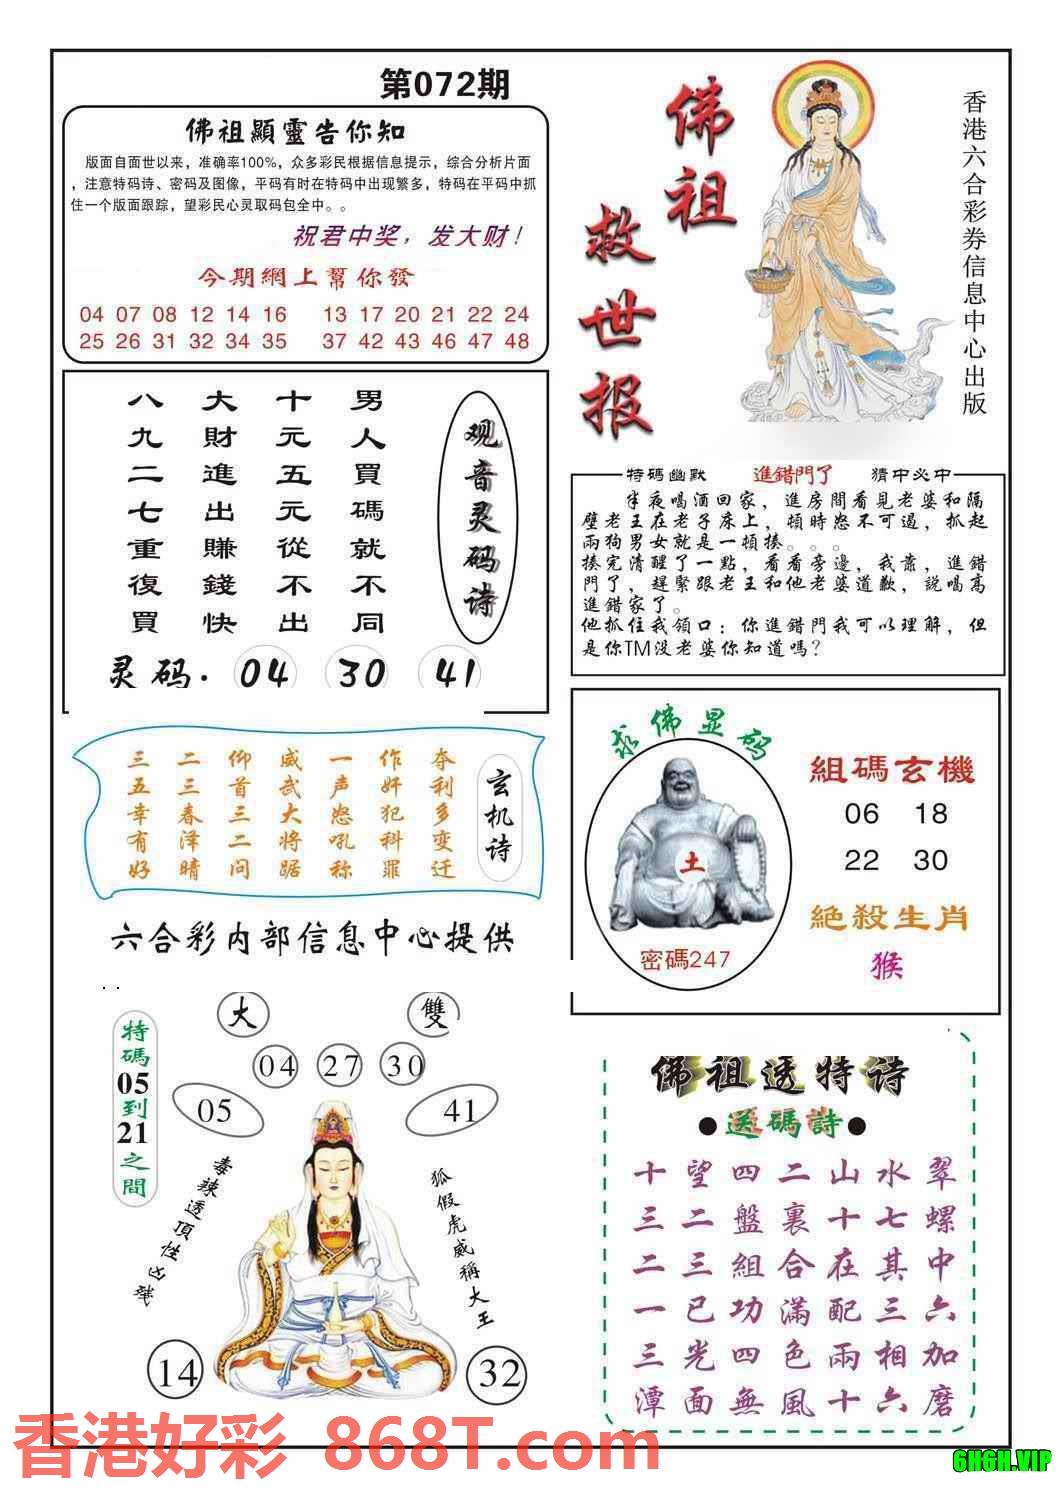 第072期
佛祖顯靈告你知
版面自面世以来，准确率100%，众多彩民根据信息提示，综合分析片面
，注意特码诗、密码及图像，平码有时在特码中出现繁多，特码在平码中抓
住一个版面跟踪，望彩民心灵取码包全中。。
祝君中奖，发大财！
今期網上幫你發
04 07 08 12 14 16 13 17 20 21 22 24
25 26 31 32 34 35 37 42 43 46 47 48
佛祖
救世报
香港六合彩券信息中心出版
观音灵码诗
男人買碼就不同
十元五元從不出
大財進出賺錢快
八九二七重復買
灵码. 04 30 41
特碼幽默 進錯門了 猜中必中
半夜喝酒回家，進房間看見老婆和隔
壁老王在老子床上，頓時怒不可遏，抓起
兩狗男女就是一頓揍。。。
揍完清醒了一點，看看旁邊，我靠，進錯
門了，趕緊跟老王和他老婆道歉，説喝高
進錯家了。
他抓住我領口：你進錯門我可以理解，但
是你TM没老婆你知道嗎？
玄机诗
夺利多变迁
作奸犯科罪
一声怒吼称
威武大将踞
仰首三二问
二三春泽晴
三五幸有好
六合彩内部信息中心提供
求佛显码
土
密碼247
組碼玄機
06 18
22 30
絶殺生肖
猴
特碼05到21之間
大 雙
04 27 30
05 41
毒辣透頂性凶残
狐假虎威稱大王
14 32
佛祖透特诗
●送碼詩●
十望四二山水翠
三二盤裏十七螺
二三組合在其中
一已功滿配三六
三光四色兩相加
潭面無風十六磨
香港好彩 868T.com
6H6H.VIP